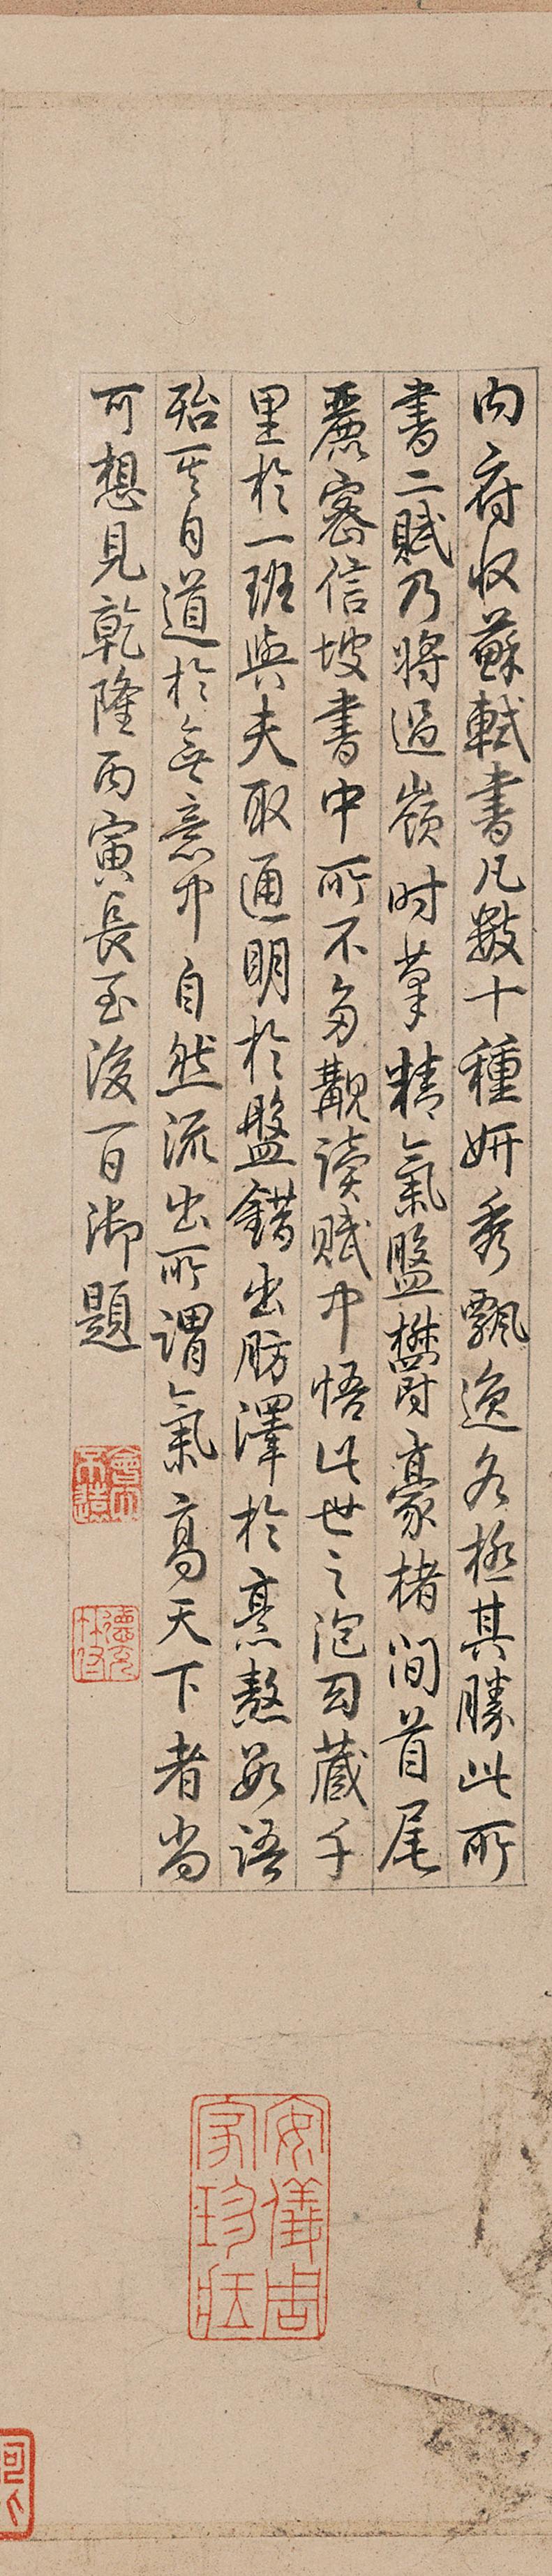 内府收蘇軾書凡數十種妍秀飄逸各極其勝此所
書二賦乃將過嶺時筆精氣盤鬱豪楮間首尾
麗密信坡書中所不多覯讀賦中悟此世之泡幻藏千
里於一班與夫取通明於盤錯出肪澤於烹熬數語
殆其自道於無意中自然流出所謂氣高天下者尚
可想見乾隆丙寅長至後一日御題
會心不遠
德充符
安儀周家珍藏